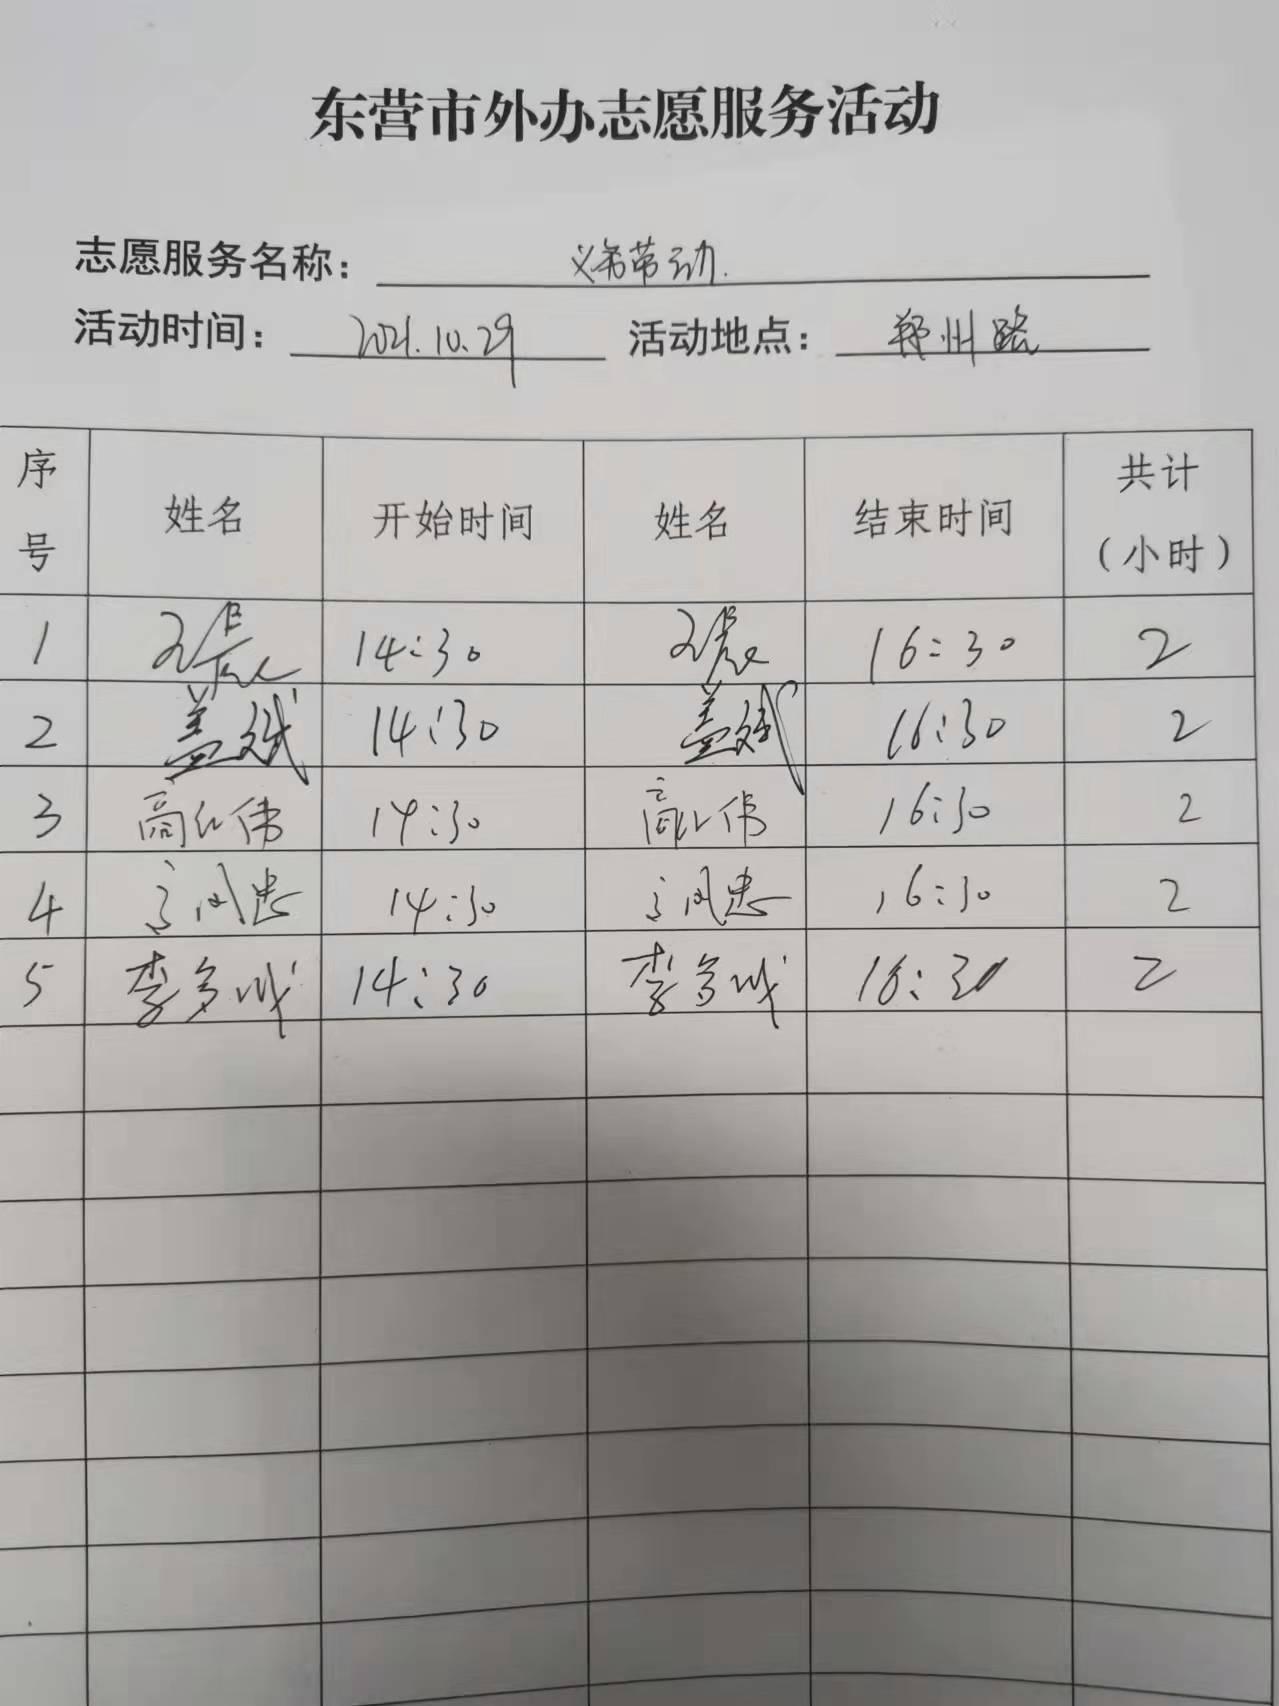 东营市外办志愿服务活动
志愿服务名称： 义务劳动.
活动时间： 2021.10.29 活动地点： 郑州路
序号 姓名 开始时间 姓名 结束时间 共计（小时）
1 14:30 16:30 2
2 盖斌 14:30 盖斌 16:30 2
3 高红伟 14:30 高红伟 16:30 2
4 14:30 16:30 2
5 李多成 14:30 李多成 16:30 2